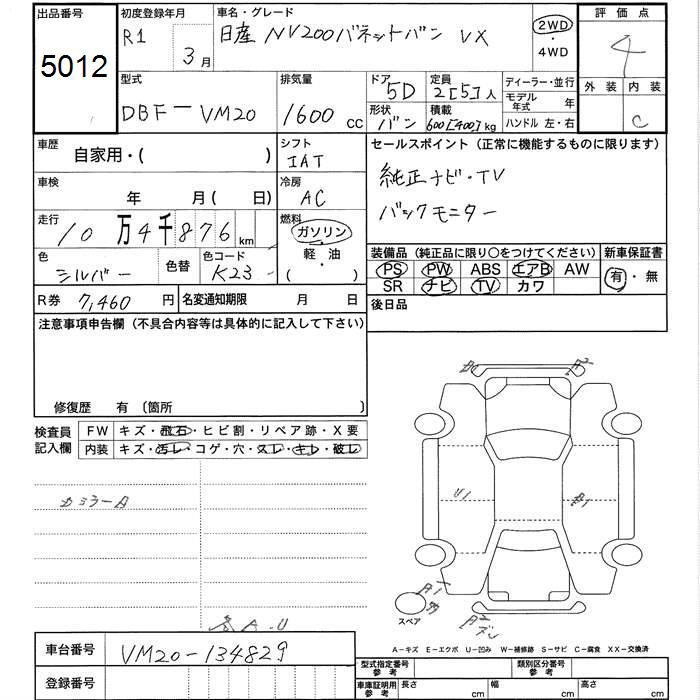 出品番号 初度登録年月 車名・グレード 評価点
5012 R1 3月 日産 NV200バネットバン VX 2WD・4WD 4
型式 排気量 ドア 5D 定員 2[5]人 ディーラー・並行 外装 内装
DBF-VM20 1600cc 形状 バン 積載 600[400]kg モデル年式 年
ハンドル 左・右 C
車歴 自家用・( ) シフト IAT セールスポイント (正常に機能するものに限ります)
車検 年 月(日) 冷房 AC 純正ナビ・TV
走行 10万4千876km 燃料 ガソリン・軽油( ) バックモニター
色 シルバー 色替 色コード K23 装備品 (純正品に限り○をつけてください) 新車保証書
PS PW ABS エアB AW 有・無
R券 7,460円 名変通知期限 月 日 SR ナビ TV カワ
注意事項申告欄 (不具合内容等は具体的に記入して下さい) 後日品
修復歴 有 〔箇所 〕
検査員記入欄 FW キズ・飛石・ヒビ割・リペア跡・X要
内装 キズ・汚レ・コゲ・穴・スレ・キレ・破レ
カミラーA
U1 A1
A1
スペア
A2
A-キズ E-エクボ U-凹み W-補修跡 S-サビ C-腐食 XX-交換済
車台番号 VM20-134829 型式指定番号 参考 類別区分番号 参考
登録番号 車庫証明用 参考 長さ cm 幅 cm 高さ cm